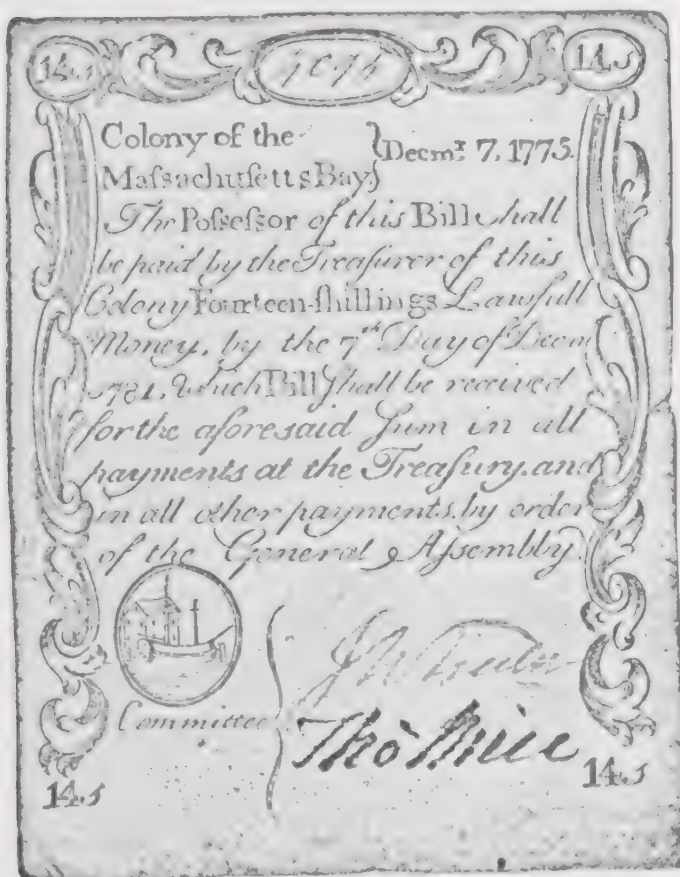 14.s 14.s
Colony of the
Maſsachuſetts Bay } Decmr. 7, 1775.
The Poſseſsor of this Bill ſhall
be paid by the Treaſurer of this
Colony Fourteen-ſhillings Lawfull
Money, by the 7th Day of Decmr
1781, Which Bill ſhall be received
for the aforesaid ſum in all
payments at the Treaſury, and
in all other payments, by order
of the General Aſsembly.
Committee
Tho
14.s 14.s